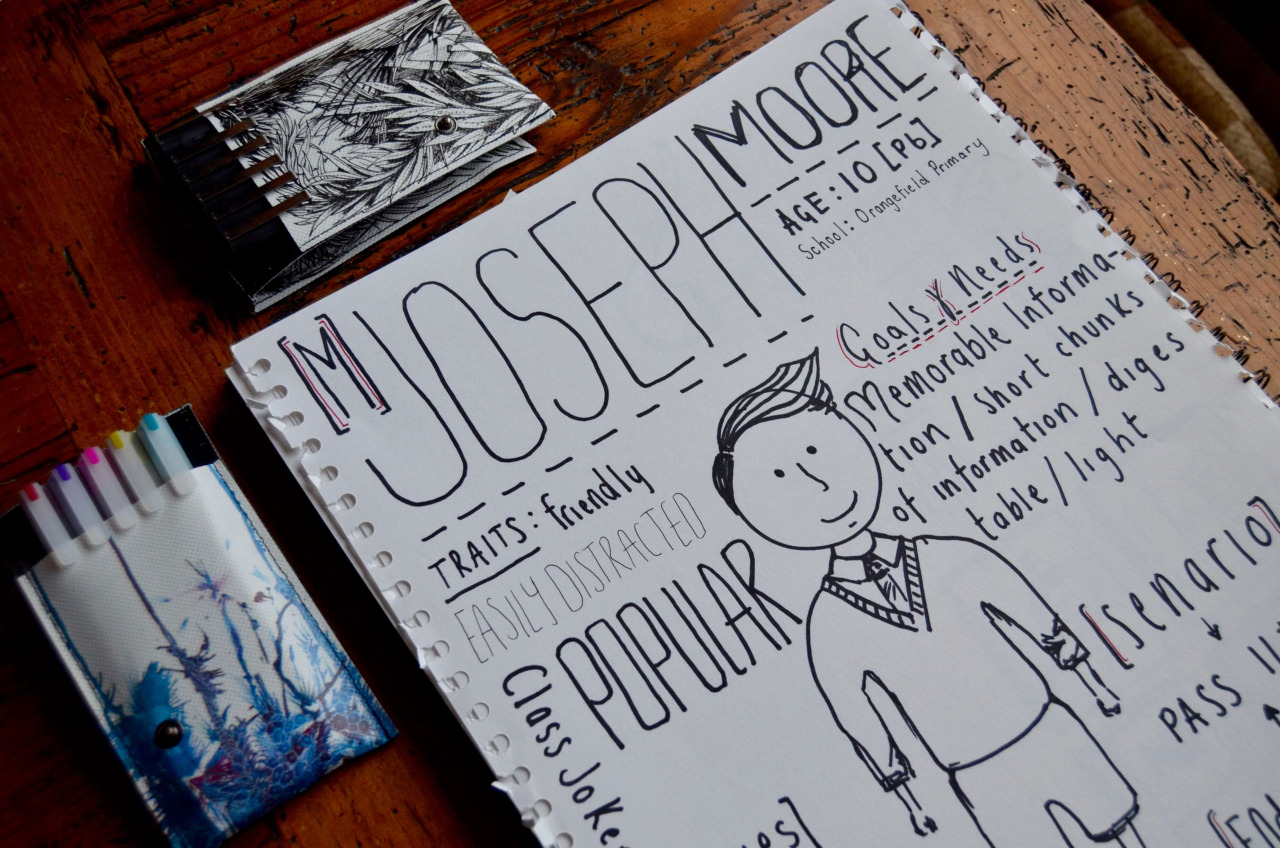 [M] JOSEPH MOORE
AGE: 10 [P6]
School: Orangefield Primary
TRAITS: friendly
EASILY DISTRACTED
POPULAR
Class Joke
Goals & Needs
Memorable Informa-
tion / short chunks
of information / diges
table / light
[senario]
PASS